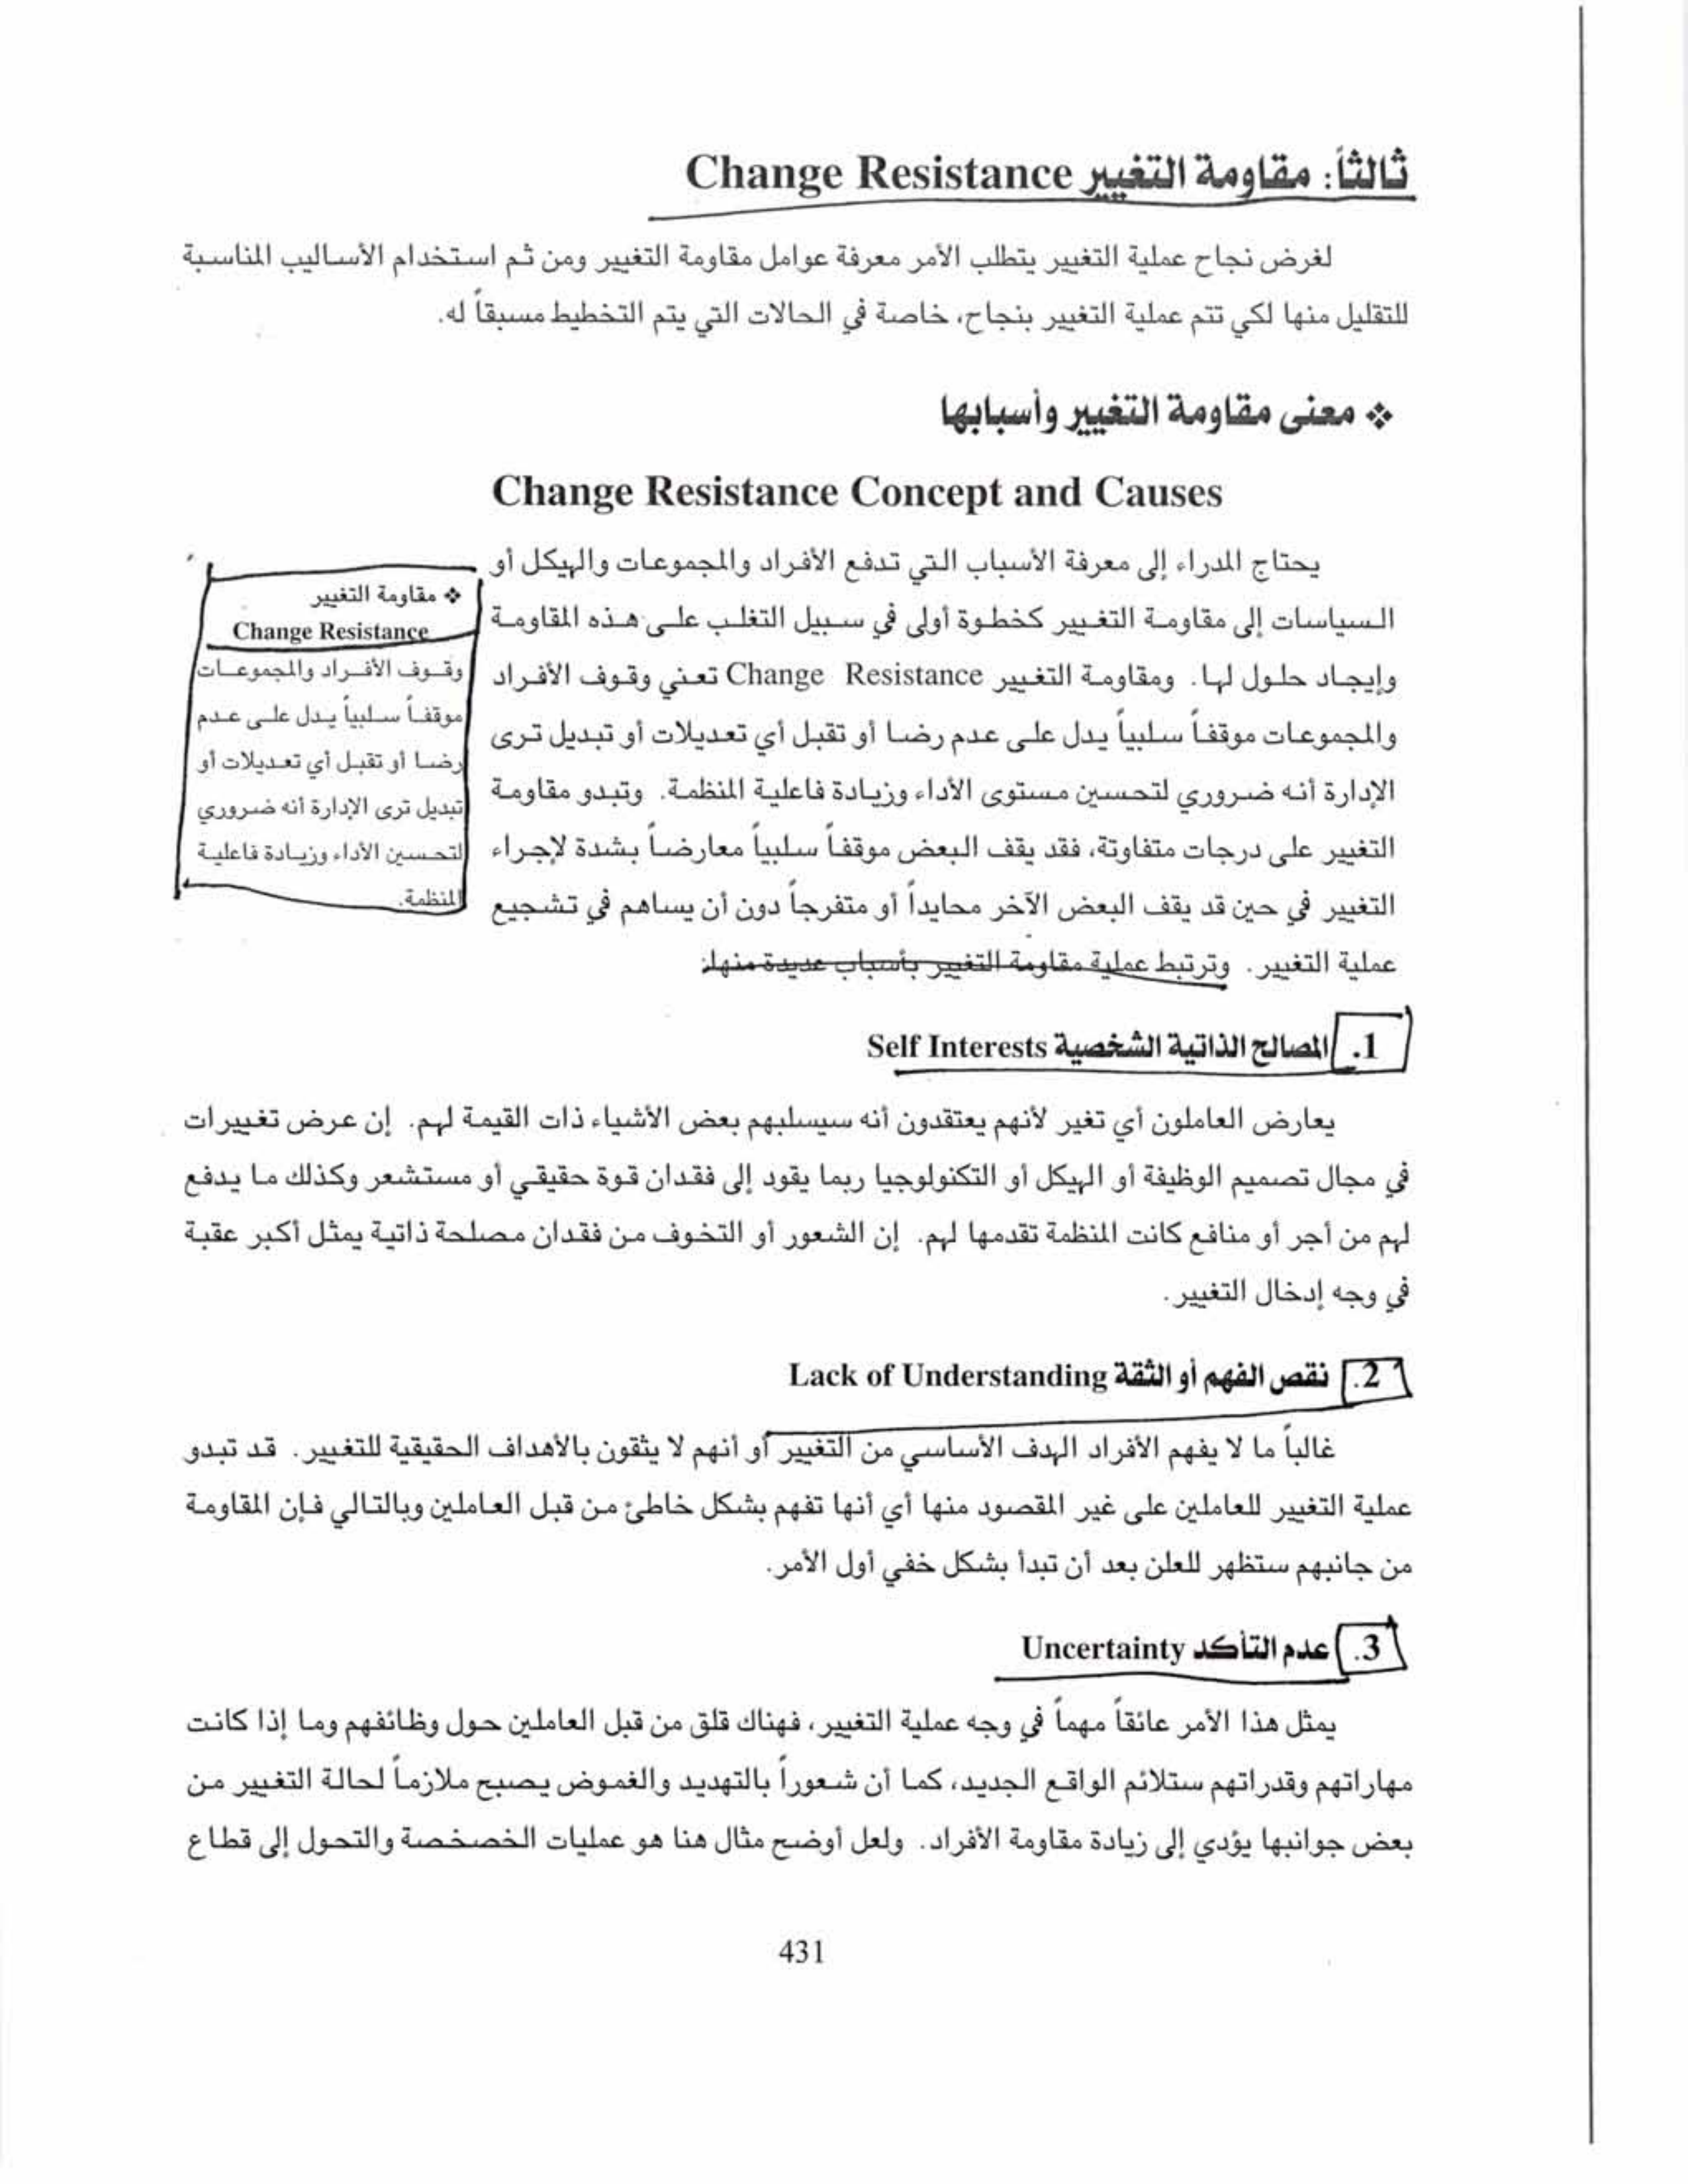 ثالثاً: مقاومة التغيير Change Resistance
لغرض نجاح عملية التغيير يتطلب الأمر معرفة عوامل مقاومة التغيير ومن ثم استخدام الأساليب المناسبة
للتقليل منها لكي تتم عملية التغيير بنجاح، خاصة في الحالات التي يتم التخطيط مسبقاً له.
❖ معنى مقاومة التغيير وأسبابها
Change Resistance Concept and Causes
يحتاج المدراء إلى معرفة الأسباب التي تدفع الأفراد والمجموعات والهيكل أو
السياسات إلى مقاومة التغيير كخطوة أولى في سبيل التغلب على هذه المقاومة
وإيجاد حلول لها. ومقاومة التغيير Change Resistance تعني وقوف الأفراد
والمجموعات موقفاً سلبياً يدل على عدم رضا أو تقبل أي تعديلات أو تبديل ترى
الإدارة أنه ضروري لتحسين مستوى الأداء وزيادة فاعلية المنظمة. وتبدو مقاومة
التغيير على درجات متفاوتة، فقد يقف البعض موقفاً سلبياً معارضاً بشدة لإجراء
التغيير في حين قد يقف البعض الآخر محايداً أو متفرجاً دون أن يساهم في تشجيع
عملية التغيير. وترتبط عملية مقاومة التغيير بأسباب عديدة منها:
❖ مقاومة التغيير
Change Resistance
وقوف الأفراد والمجموعات
موقفاً سلبياً يدل على عدم
رضا أو تقبل أي تعديلات أو
تبديل ترى الإدارة أنه ضروري
لتحسين الأداء وزيادة فاعلية
المنظمة.
1. المصالح الذاتية الشخصية Self Interests
يعارض العاملون أي تغير لأنهم يعتقدون أنه سيسلبهم بعض الأشياء ذات القيمة لهم. إن عرض تغييرات
في مجال تصميم الوظيفة أو الهيكل أو التكنولوجيا ربما يقود إلى فقدان قوة حقيقي أو مستشعر وكذلك ما يدفع
لهم من أجر أو منافع كانت المنظمة تقدمها لهم. إن الشعور أو التخوف من فقدان مصلحة ذاتية يمثل أكبر عقبة
في وجه إدخال التغيير.
2. نقص الفهم أو الثقة Lack of Understanding
غالباً ما لا يفهم الأفراد الهدف الأساسي من التغيير أو أنهم لا يثقون بالأهداف الحقيقية للتغيير. قد تبدو
عملية التغيير للعاملين على غير المقصود منها أي أنها تفهم بشكل خاطئ من قبل العاملين وبالتالي فإن المقاومة
من جانبهم ستظهر للعلن بعد أن تبدأ بشكل خفي أول الأمر.
3. عدم التأكد Uncertainty
يمثل هذا الأمر عائقاً مهماً في وجه عملية التغيير، فهناك قلق من قبل العاملين حول وظائفهم وما إذا كانت
مهاراتهم وقدراتهم ستلائم الواقع الجديد، كما أن شعوراً بالتهديد والغموض يصبح ملازماً لحالة التغيير من
بعض جوانبها يؤدي إلى زيادة مقاومة الأفراد. ولعل أوضح مثال هنا هو عمليات الخصخصة والتحول إلى قطاع
431